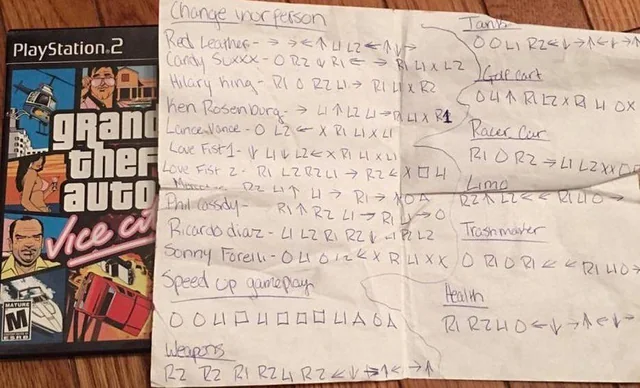 PlayStation 2
grand
theft
auto
Vice City
MATURE
M
ESRB
Change ur person
Red Leather - → → ← ↑ L1 L2 ← ↑ ↓ →
Candy Suxxx - O R2 ↓ R1 ← → R1 L1 X L2
Hilary King - R1 O R2 L1 → R1 L1 X R2
Ken Rosenburg → L1 ↑ L2 L1 → R1 L1 X R1
Lance Vance - O L2 ← X R1 L1 X L1
Love Fist 1 - ↓ L1 ↓ L2 ← X R1 L1 X L1
Love Fist 2 - R1 L2 R2 L1 → R2 ← X □ L1
R2 L1 ↑ L1 → R1 → X O △
Phil Cassdy - R1 ↑ R2 L1 → R1 → O
Ricardo diaz - L1 L2 R1 R2 ↓ L1 R2 L2
Sonny Forelli - O L1 O L2 ← X R1 L1 X X
Speed up gameplay
O O L1 □ L1 □ □ □ L1 △ O △
Weapons
R2 R2 R1 R2 L1 R2 ← ↓ → ↑ ← ↓ → ↑
Tank
O O L1 R2 ← ↓ → ↑ ← ↓ → ↑
Golf cart
O L1 ↑ R1 L2 X R1 L1 O X
Racer Car
R1 O R2 → L1 L2 X X □
Limo
R2 ↑ L2 ← ← R1 L1 O →
Trashmaster
O R1 O R1 ← ← R1 L1 O →
Health
R1 R2 L1 O ← ↓ → ↑ ← ↓ →